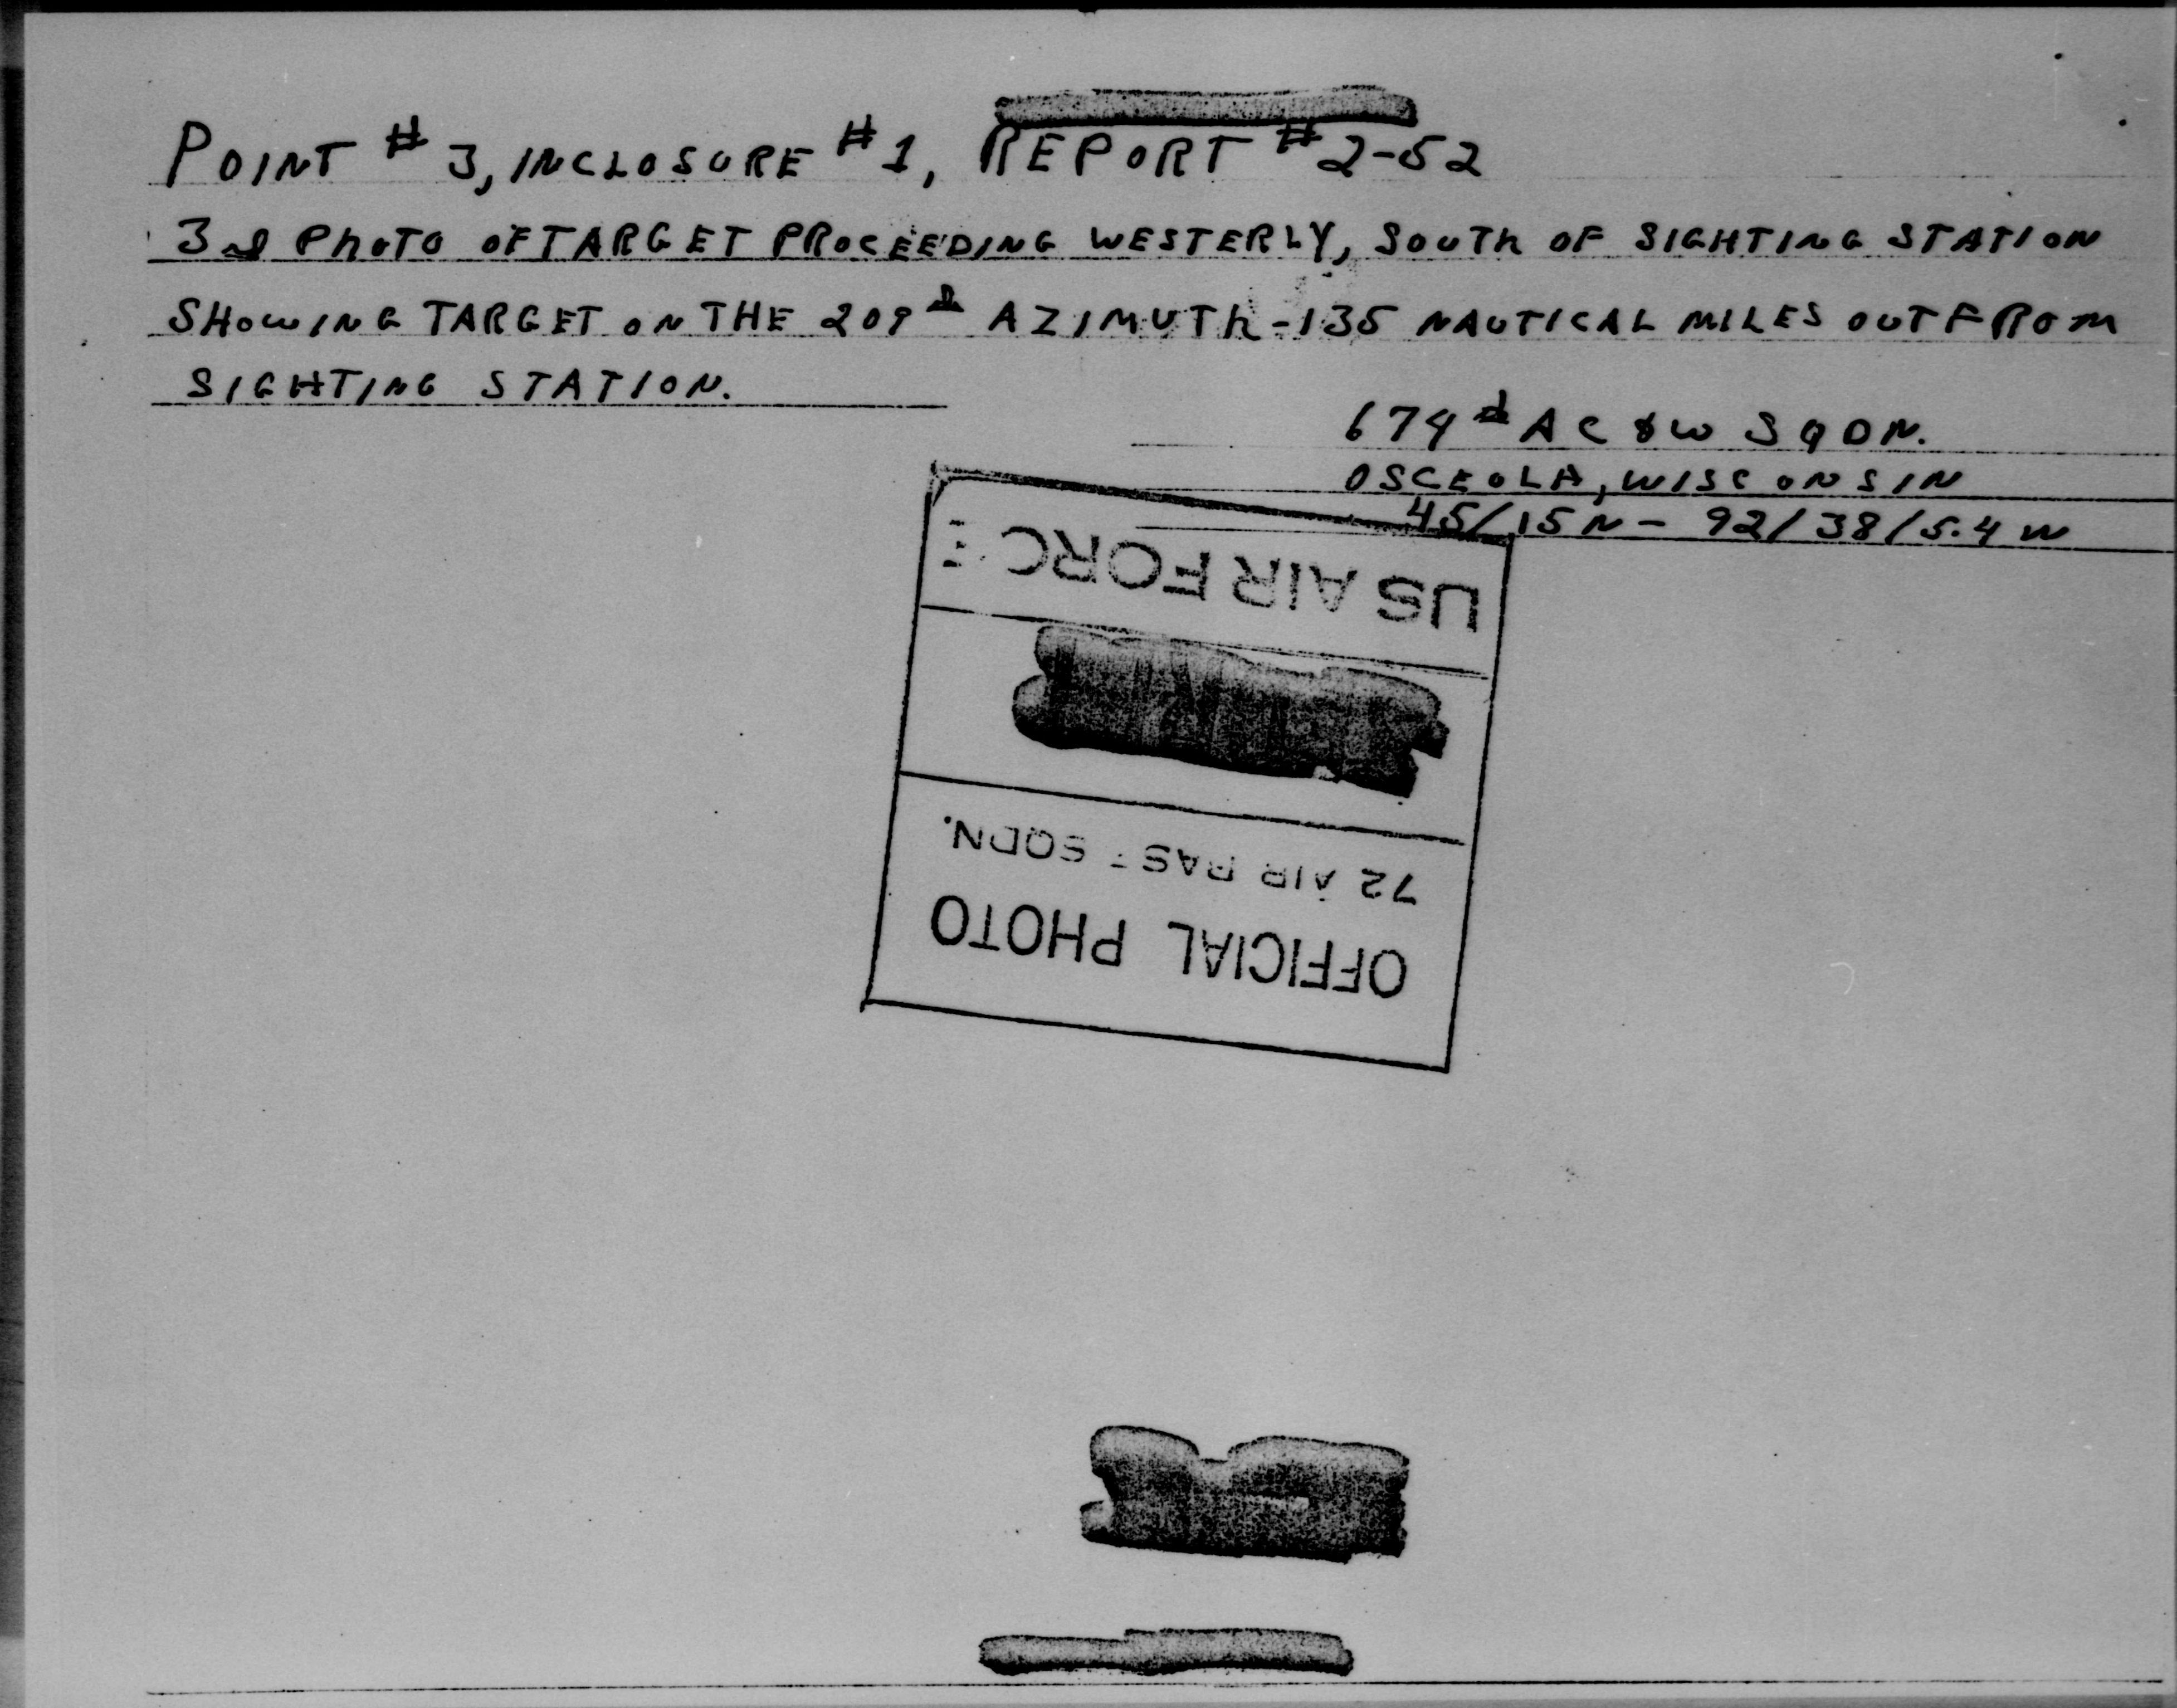 POINT # 3, INCLOSURE # 1, REPORT # 2-52
3rd PhOTO OF TARGET PROCEEDING WESTERLY, SOUTh OF SIGHTING STATION
SHOWING TARGET ON THE 209d AZIMUTh - 135 NAUTICAL MILES OUT FROM
SIGHTING STATION.
674d AC & W SQDN.
OSCEOLA, WISCONSIN
45/15N - 92/38/5.4 W
OFFICIAL PHOTO
72 AIR BAST SQDN.
US AIR FORCE